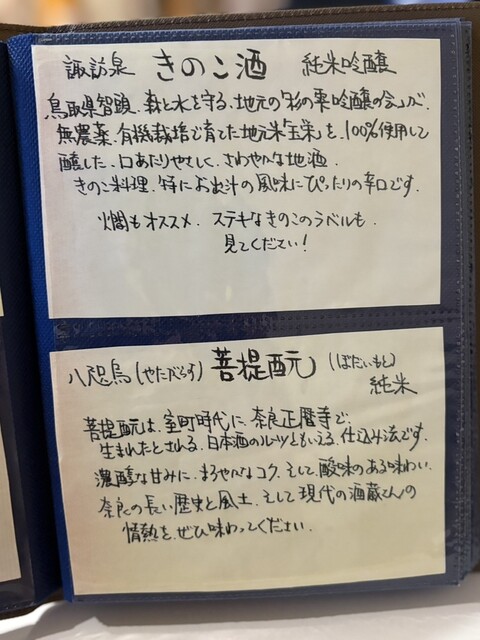 諏訪泉 きのこ酒 純米吟醸
鳥取県智頭、森と水を守る、地元の「杉の雫吟醸の会」が、
無農薬、有機栽培で育てた地元米「玉栄」を、100%使用して
醸した、口あたりやさしく、さわやかな地酒。
きのこ料理、特にお出汁の風味にぴったりの辛口です。
燗もオススメ。ステキなきのこのラベルも
見てください!
八咫烏(やたがらす) 菩提酛 (ぼだいもと)
純米
菩提酛は、室町時代に、奈良正暦寺で、
生まれたとされる、日本酒のルーツともいえる、仕込み法です。
濃醇な甘みに、まろやかなコク、そして酸味のある味わい。
奈良の長い歴史と風土、そして現代の酒蔵さんの
情熱を、ぜひ味わってください。